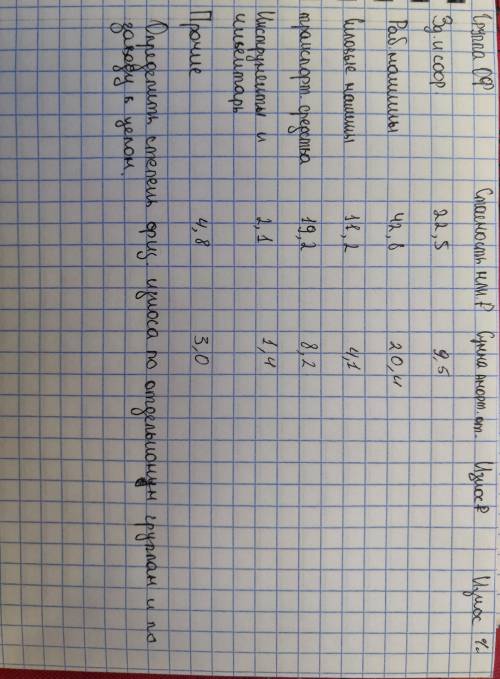 Группа ОФ Стоемость млн.₽ Сумма аморт. от. Износ ₽ Износ %.
Зд. и соор. 22,5 9,5
Раб машины 42,8 20,4
Силовые машины 11,2 4,1
транспорт. средства 19,2 8,2
Инструменты и
инвентарь 2,1 1,4
Прочие 4,8 3,0
Определить степень физ. износа по отдельным группам и по
заводу в целом.